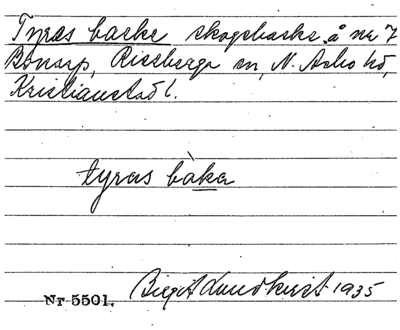 Tyras backe skogsbacke å nr 7
Bonarp, Riseberga sn, N. Åsbo hd,
Kristianstad l.
tyras bàka
Nr 5501. Birgit Lundkvist 1935